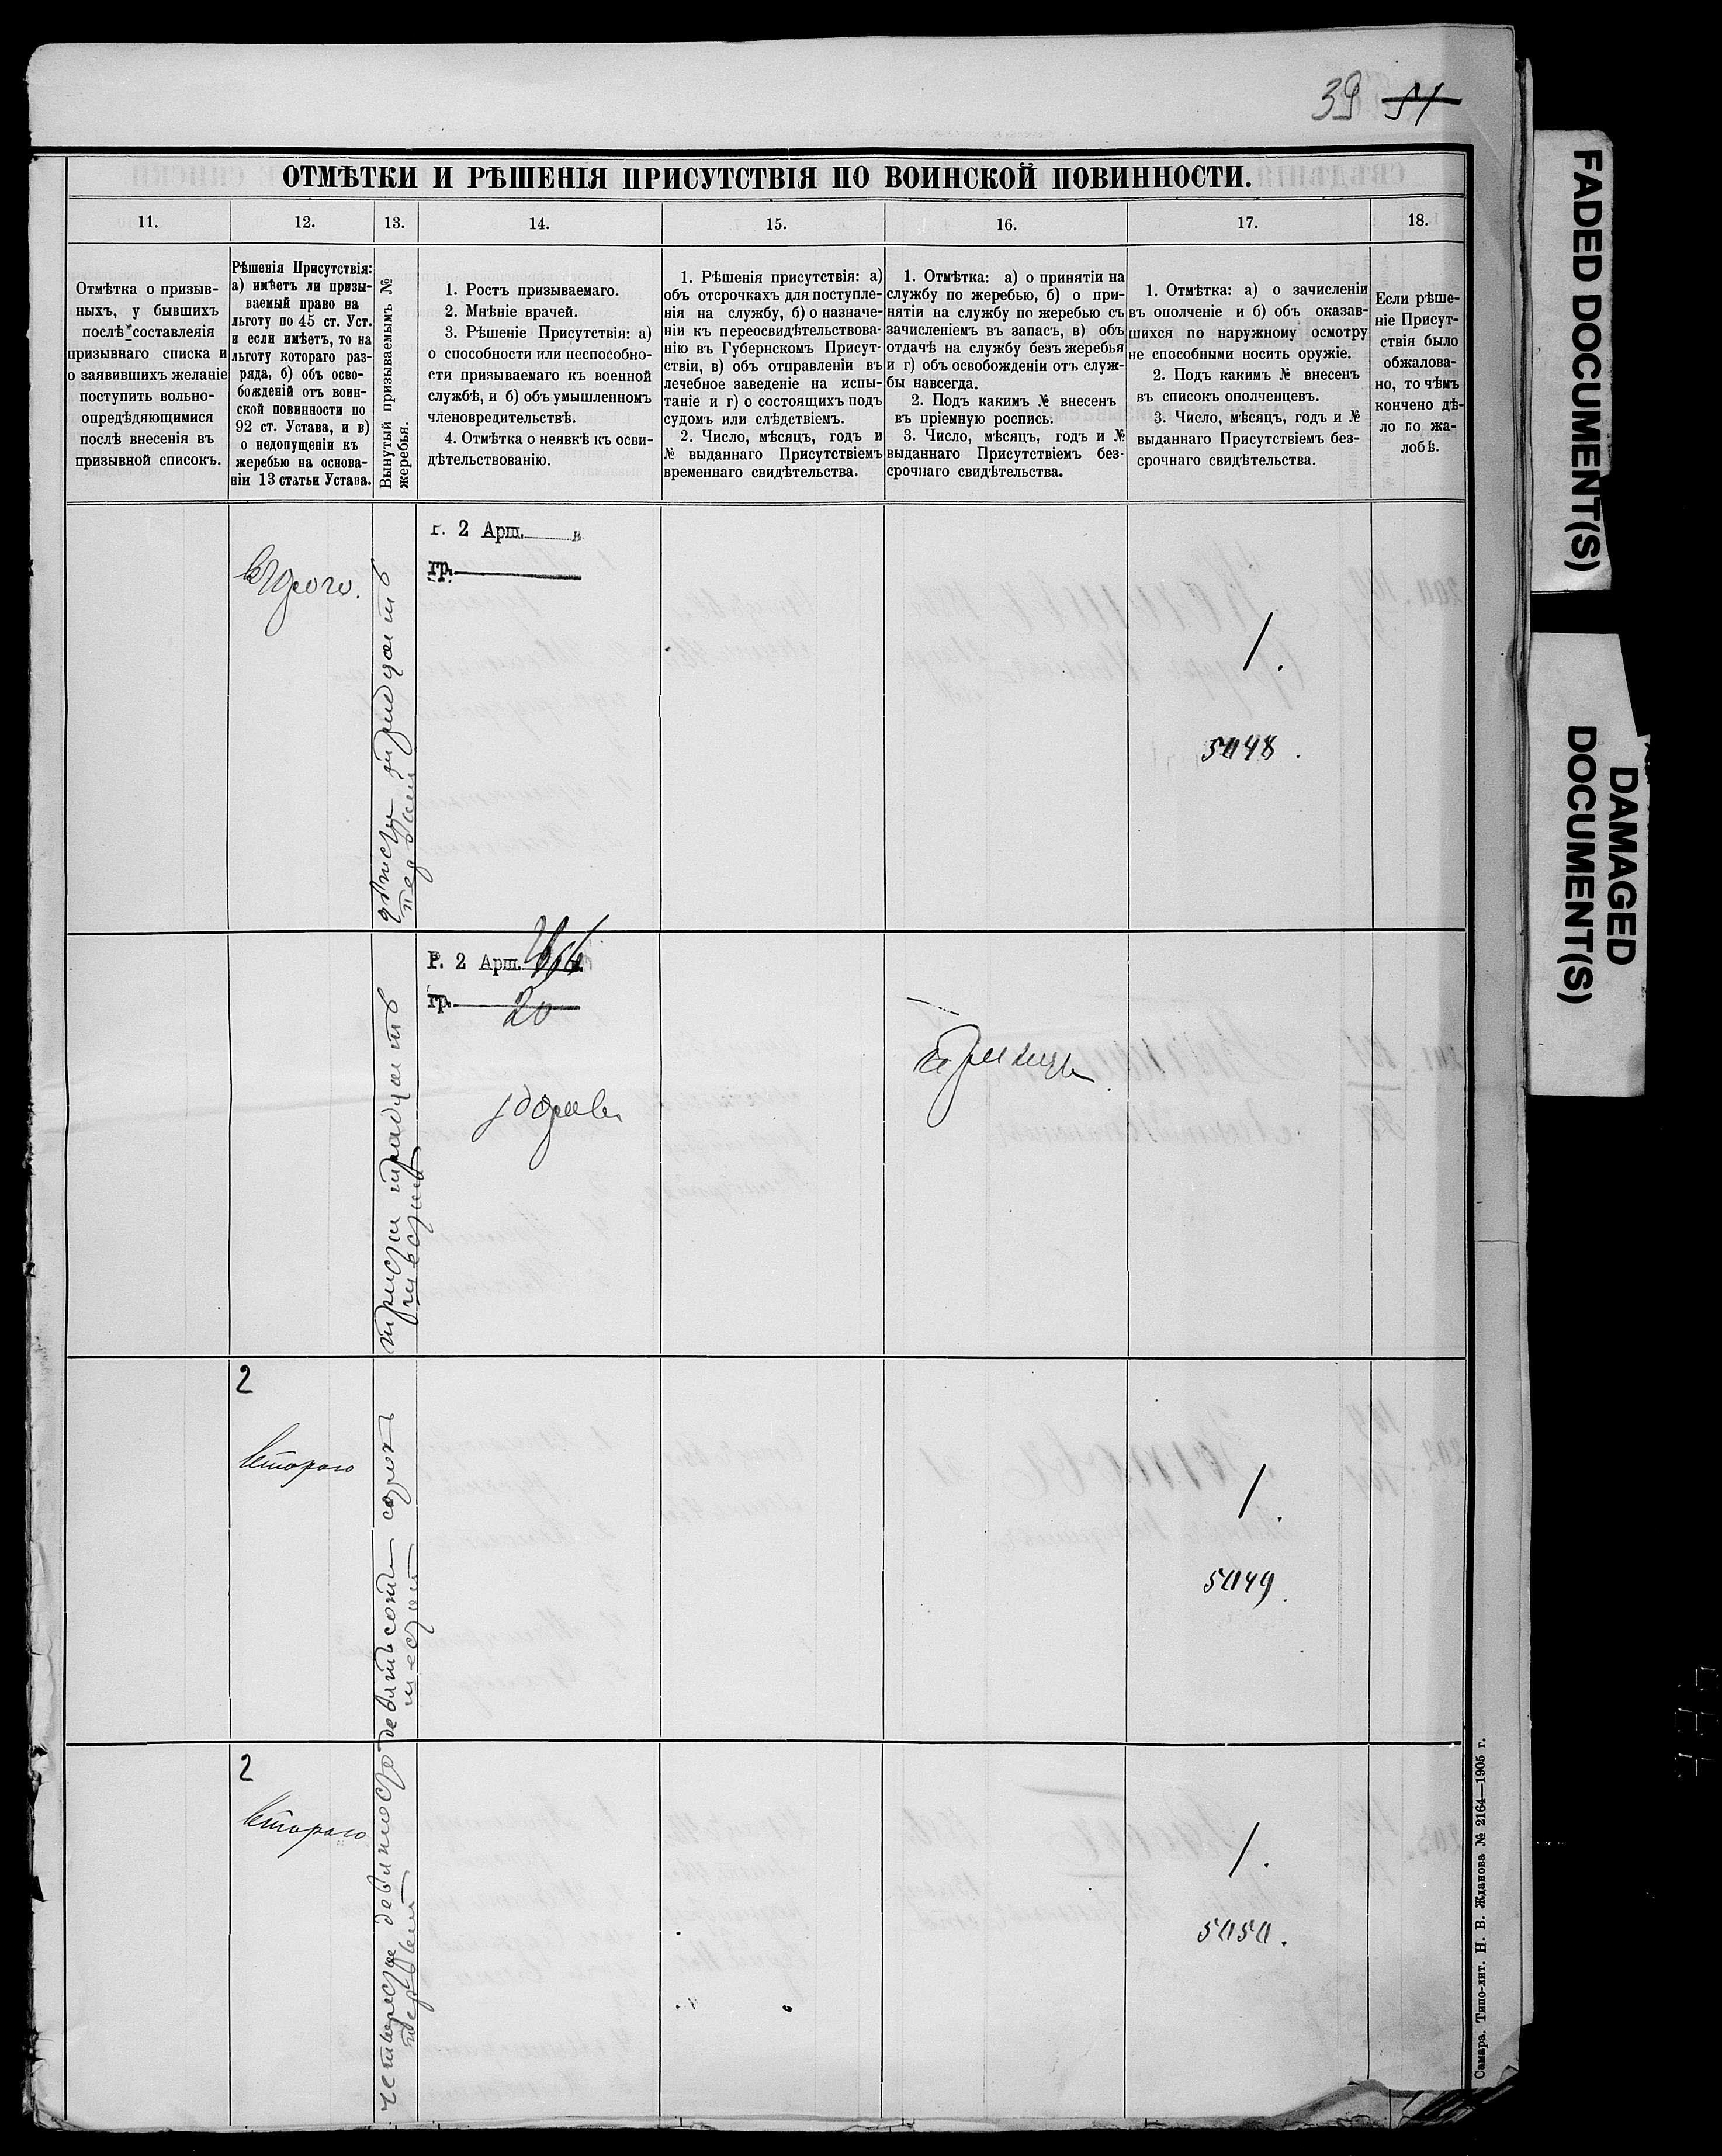 39 51
ОТМѢТКИ И РѢШЕНІЯ ПРИСУТСТВІЯ ПО ВОИНСКОЙ ПОВИННОСТИ.
11.
12.
13.
14.
15.
16.
17.
18.
Отмѣтка о призыв-
ныхъ, у бывшихъ
послѣ составленія
призывнаго списка и
о заявившихъ желаніе
поступить вольно-
опредѣляющимися
послѣ внесенія въ
призывной списокъ.
Рѣшенія Присутствія:
а) имѣетъ ли призы-
ваемый право на
льготу по 45 ст. Уст.
и если имѣетъ, то на
льготу котораго раз-
ряда, б) объ осво-
божденій отъ воин-
ской повинности по
92 ст. Устава, и в)
о недопущеніи къ
жеребью на основа-
ніи 13 статьи Устава.
Вынутый призываемымъ №
жеребья.
1. Ростъ призываемаго.
2. Мнѣніе врачей.
3. Рѣшеніе Присутствія: а)
о способности или неспособно-
сти призываемаго къ военной
службѣ, и б) объ умышленномъ
членовредительствѣ.
4. Отмѣтка о неявкѣ къ осви-
дѣтельствованію.
1. Рѣшенія присутствія: а)
объ отсрочкахъ для поступле-
нія на службу, б) о назначе-
ніи къ переосвидѣтельствова-
нію въ Губернскомъ Присут-
ствіи, в) объ отправленіи въ
лечебное заведеніе на испы-
таніе и г) о состоящихъ подъ
судомъ или слѣдствіемъ.
2. Число, мѣсяцъ, годъ и
№ выданнаго Присутствіемъ
временнаго свидѣтельства.
1. Отмѣтка: а) о принятіи на
службу по жеребью, б) о при-
нятіи на службу по жеребью съ
зачисленіемъ въ запасъ, в) объ
отдачѣ на службу безъ жеребья
и г) объ освобожденіи отъ служ-
бы навсегда.
2. Подъ какимъ № внесенъ
въ пріемную роспись.
3. Число, мѣсяцъ, годъ и №
выданнаго Присутствіемъ без-
срочнаго свидѣтельства.
1. Отмѣтка: а) о зачисленіи
въ ополченіе и б) объ оказав-
шихся по наружному осмотру
не способными носить оружіе.
2. Подъ какимъ № внесенъ
въ списокъ ополченцевъ.
3. Число, мѣсяцъ, годъ и №
выданнаго Присутствіемъ без-
срочнаго свидѣтельства.
Если рѣше-
ніе Присут-
ствія было
обжалова-
но, то чѣмъ
кончено дѣ-
ло по жа-
лобѣ.
второго.
двѣсти тридцать
первый
Р. 2 Арш. в
гр.
1.
5048.
триста тридцать
шестой
Р. 2 Арш.
гр. 20
здоровъ
2
второго
девятьсотъ сорокъ
шестой
1.
5049.
2
второго
четыреста девяносто
первый
1.
5050.
Самара. Типо-лит. Н. В. Жданова № 2164—1905 г.
FADED DOCUMENT(S)
DAMAGED
DOCUMENT(S)